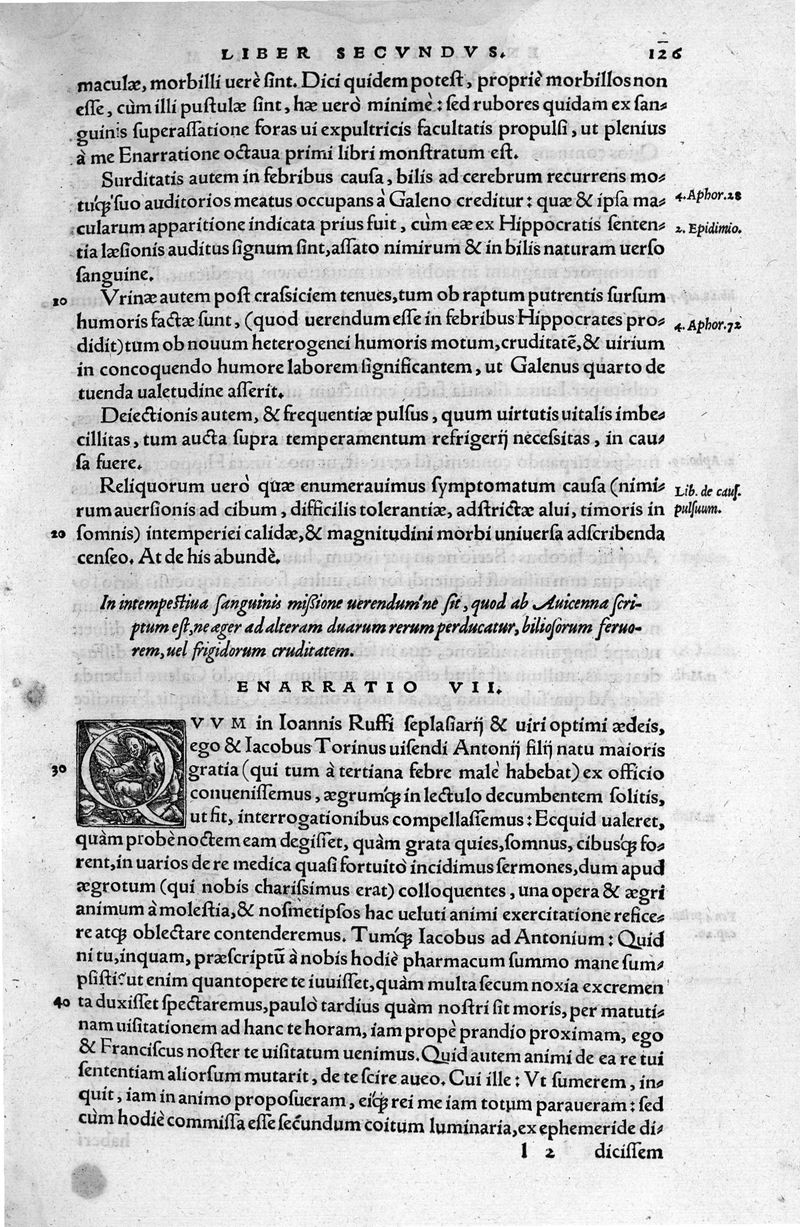 LIBER SECVNDVS. 126
maculæ, morbilli uerè sint. Dici quidem potest, propriè morbillos non
esse, cùm illi pustulæ sint, hæ uerò minimè: sed rubores quidam ex san-
guinis superassatione foras ui expultricis facultatis propulsi, ut plenius
à me Enarratione octaua primi libri monstratum est.
Surditatis autem in febribus causa, bilis ad cerebrum recurrens mo-
tuq́; suo auditorios meatus occupans à Galeno creditur: quæ & ipsa ma-
4. Aphor. 28
cularum apparitione indicata prius fuit, cùm eæ ex Hippocratis senten-
2. Epidimio.
tia læsionis auditus signum sint, assato nimirum & in bilis naturam uerso
sanguine.
10 Vrinæ autem post crassiciem tenues, tum ob raptum putrentis sursum
humoris factæ sunt, (quod uerendum esse in febribus Hippocrates pro-
4. Aphor. 72
didit) tum ob nouum heterogenei humoris motum, cruditatē, & uirium
in concoquendo humore laborem significantem, ut Galenus quarto de
tuenda ualetudine asserit.
Deiectionis autem, & frequentiæ pulsus, quum uirtutis uitalis imbe-
cillitas, tum aucta supra temperamentum refrigerij necessitas, in cau-
sa fuere.
Reliquorum uerò quæ enumerauimus symptomatum causa (nimi-
Lib. de caus.
rum auersionis ad cibum, difficilis tolerantiæ, adstrictæ alui, timoris in
pulsuum.
20 somnis) intemperiei calidæ, & magnitudini morbi uniuersa adscribenda
censeo. At de his abundè.
In intempestiua sanguinis missione uerendum'ne sit, quod ab Auicenna scri-
ptum est, ne æger ad alteram duarum rerum perducatur, biliosorum feruo-
rem, uel frigidorum cruditatem.
ENARRATIO VII.
QVVM in Ioannis Ruffi seplasiarij & uiri optimi ædeis,
ego & Iacobus Torinus uisendi Antonij filij natu maioris
30 gratia (qui tum à tertiana febre malè habebat) ex officio
conuenissemus, ægrumq́; in lectulo decumbentem solitis,
ut fit, interrogationibus compellassemus: Ecquid ualeret,
quàm probè noctem eam degisset, quàm grata quies, somnus, cibusq́; fo-
rent, in uarios de re medica quasi fortuitò incidimus sermones, dum apud
ægrotum (qui nobis charissimus erat) colloquentes, una opera & ægri
animum à molestia, & nosmetipsos hac ueluti animi exercitatione refice-
re atq; oblectare contenderemus. Tumq́; Iacobus ad Antonium: Quid
ni tu, inquam, præscriptū à nobis hodiè pharmacum summo mane sum-
psisti? ut enim quantopere te iuuisset, quàm multa secum noxia excremen
40 ta duxisset spectaremus, paulò tardius quàm nostri sit moris, per matuti-
nam uisitationem ad hanc te horam, iam propè prandio proximam, ego
& Franciscus noster te uisitatum uenimus. Quid autem animi de ea re tui
sententiam aliorsum mutarit, de te scire aueo. Cui ille: Vt sumerem, in-
quit, iam in animo proposueram, eiq́; rei me iam totum paraueram: sed
cùm hodiè commissa esse secundum coitum luminaria, ex ephemeride di-
l 2 dicissem